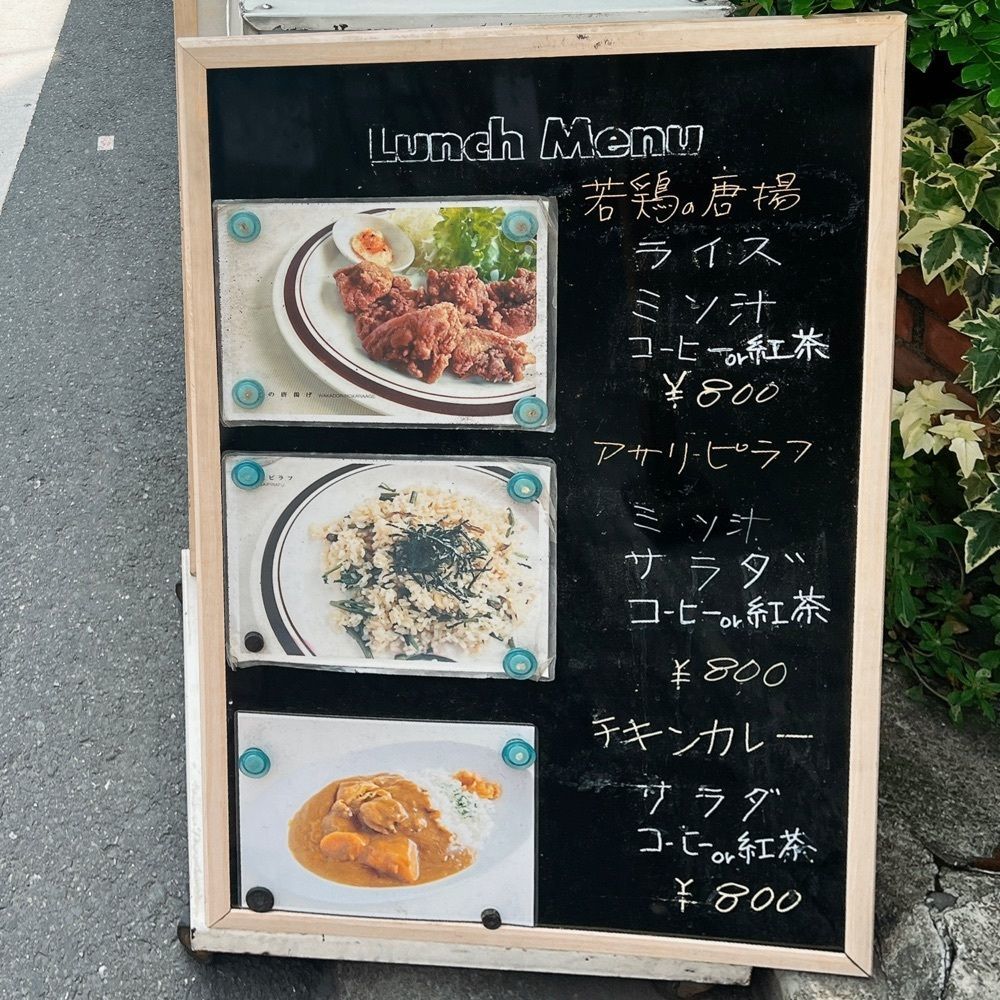 Lunch Menu
若鶏の唐揚
ライス
ミソ汁
コーヒーor紅茶
¥800
の唐揚げ WAKADORINOKARAAGE
アサリピラフ
ピラフ
ミソ汁
サラダ
コーヒーor紅茶
¥800
チキンカレー
サラダ
コーヒーor紅茶
¥800